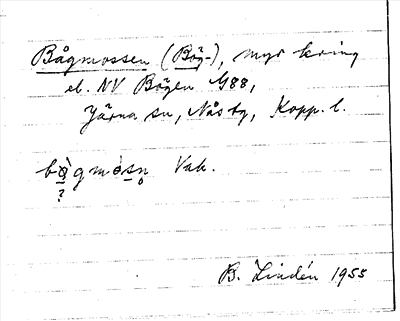 Bågmossen (Båg-), myr kring
el. NV Bågen 988,
Järna sn, Nås tg, Kopp. l.
bǫ̀gmòsn̥ Vak.
?
B. Lindén 1955